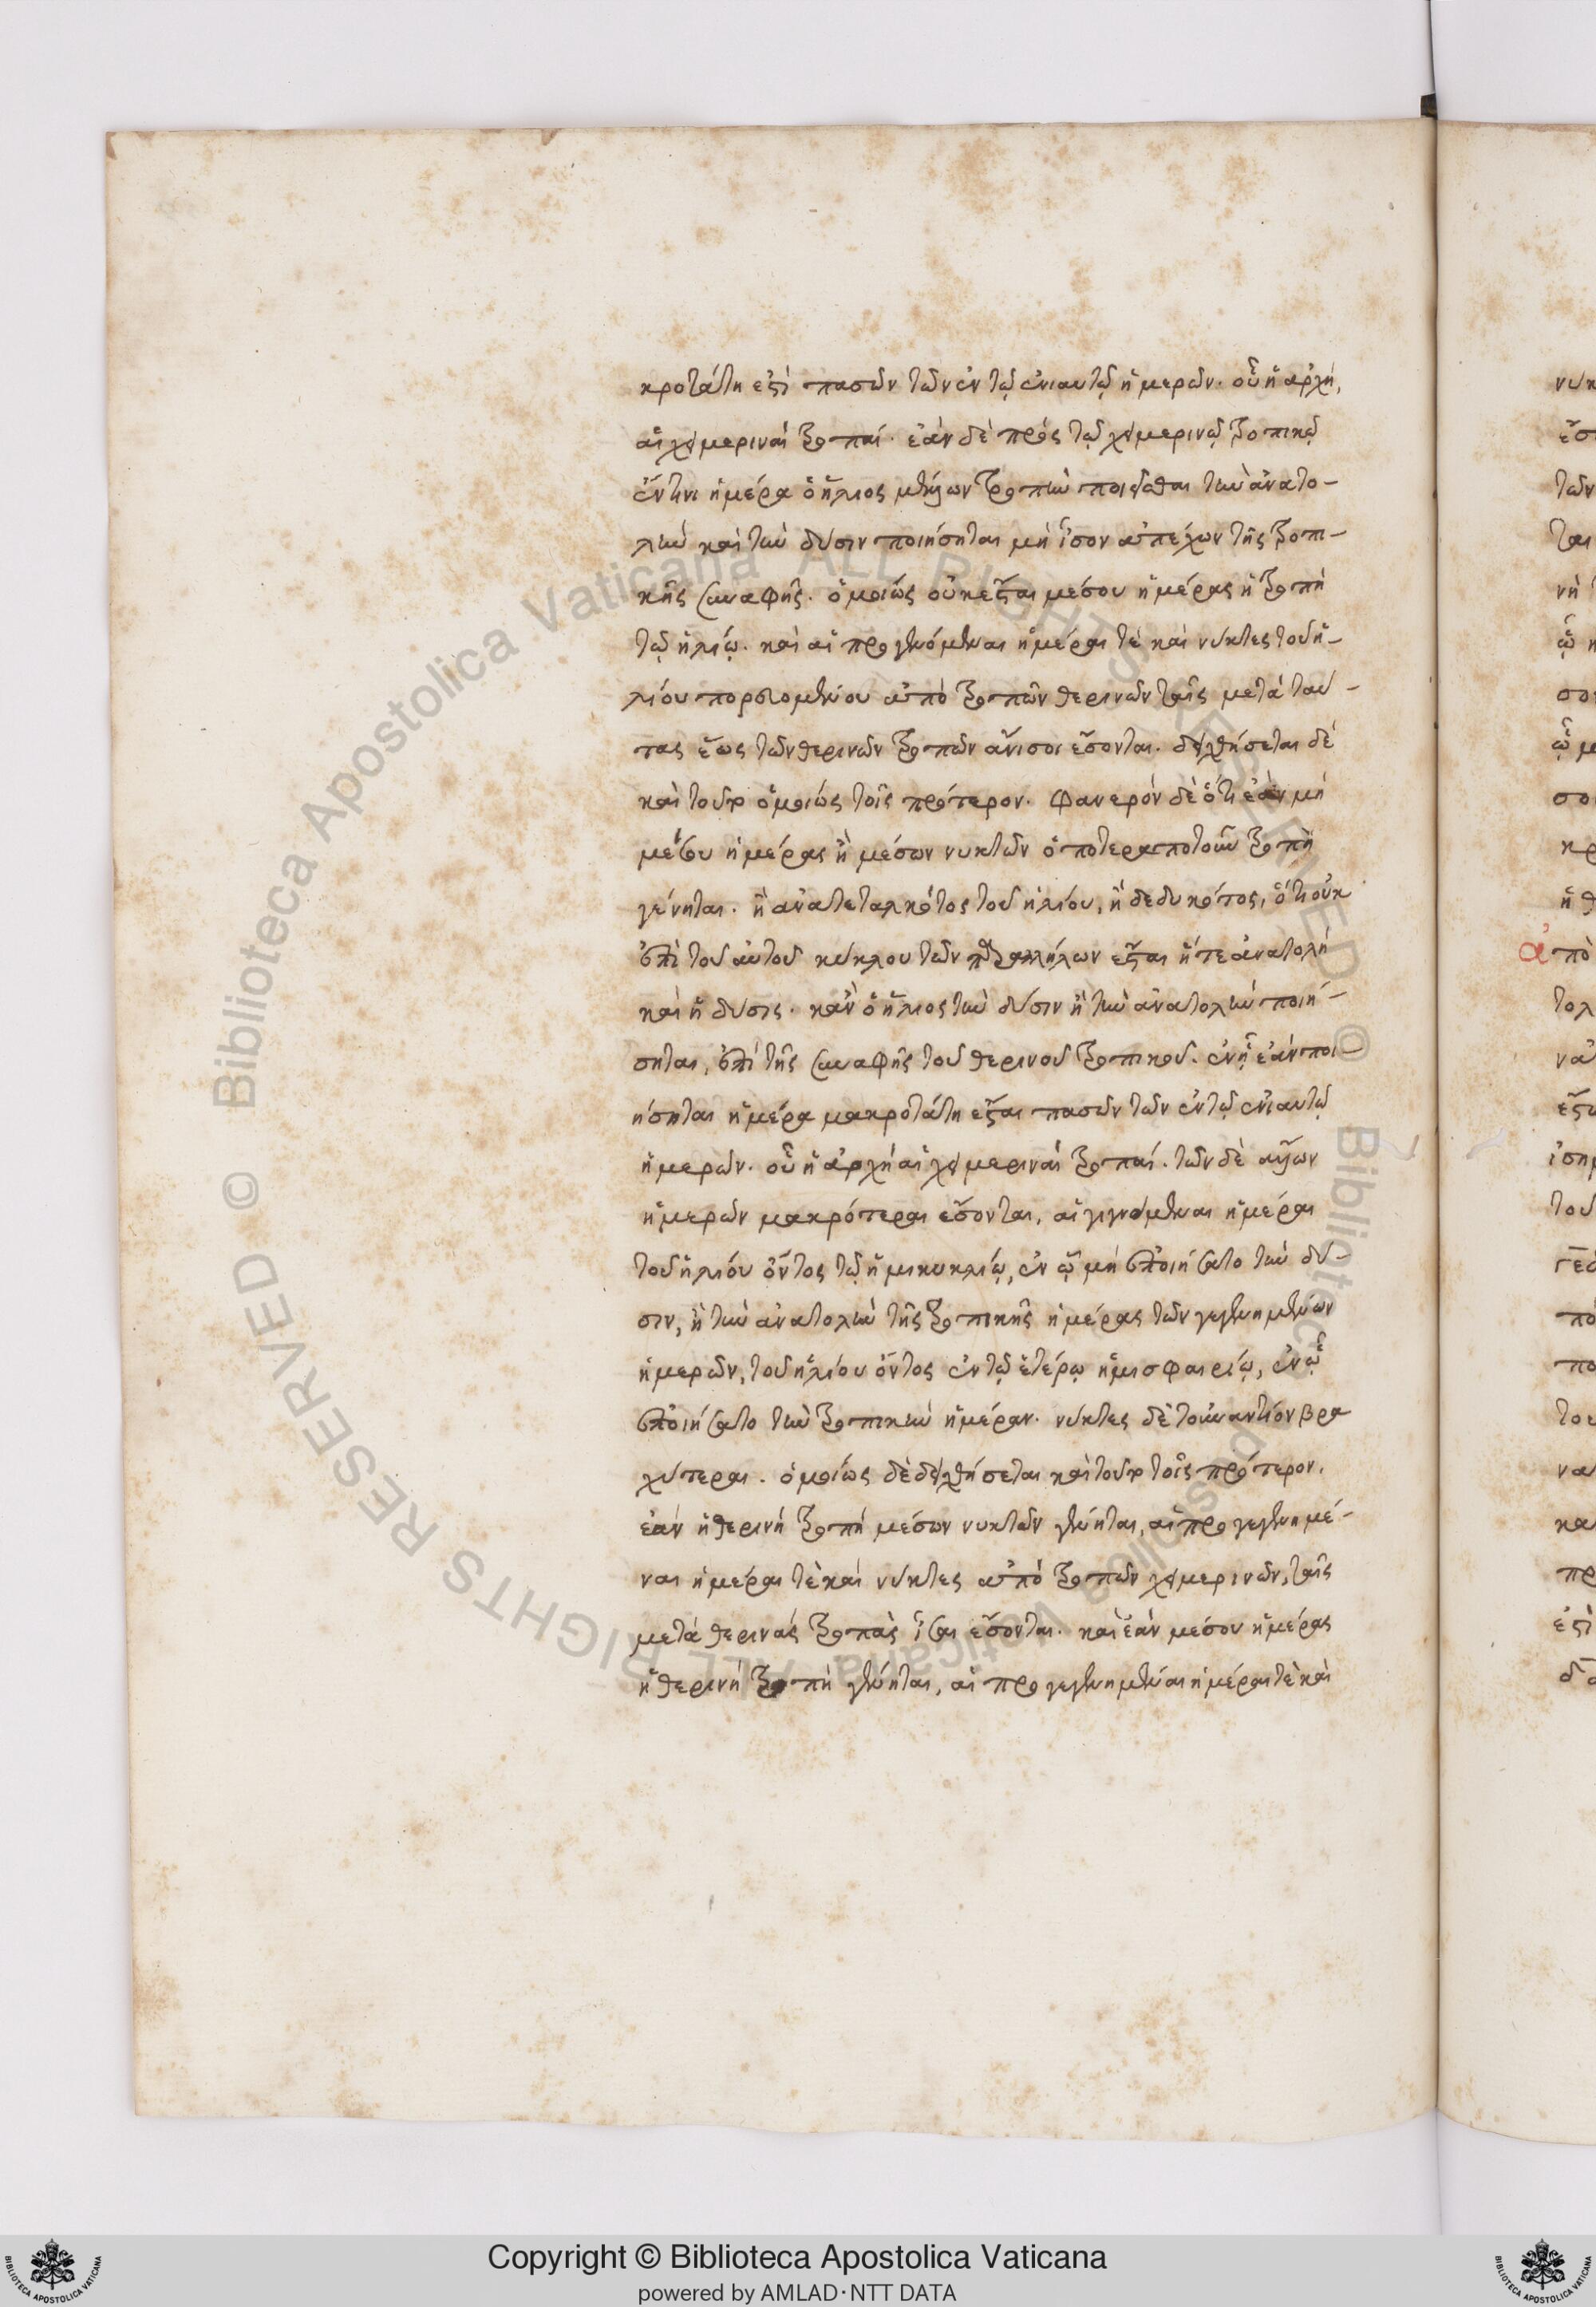 κροτάτη ἐστὶ πασῶν τῶν ἐν τῷ ἐνιαυτῷ ἡμερῶν. οὗ ἡ ἀρχή,
αἱ χειμεριναὶ τροπαί. ἐὰν δὲ πρὸς τῷ χειμερινῷ τροπικῷ
ἔν τινι ἡμέρα ὁ ἥλιος μέλλων τροπὴν ποιεῖσθαι τὴν ἀνατο-
λὴν καὶ τὴν δύσιν ποιήσηται μὴ ἴσον ἀπέχων τῆς τροπι-
κῆς συναφῆς. ὁμοίως οὐκ ἔσται μέσου ἡμέρας ἡ τροπὴ
τῷ ἡλίῳ. καὶ αἱ προγενόμεναι ἡμέραι τὲ καὶ νύκτες τοῦ ἡ-
λίου πορευομένου ἀπὸ τροπῶν θερινῶν ταῖς μετὰ ταύ-
τας ἕως τῶν θερινῶν τροπῶν ἄνισοι ἔσονται. δειχθήσεται δὲ
καὶ τοῦτο ὁμοίως τοῖς πρότερον. φανερὸν δὲ ὅτι ἐὰν μὴ
μέσου ἡμέρας ἢ μέσων νυκτῶν ὁποτεραποτοῦν τροπὴ
γένηται. ἢ ἀνατεταλκότος τοῦ ἡλίου, ἢ δεδυκότος, ὅτι οὐκ
ἐπὶ τοῦ αὐτοῦ κύκλου τῶν παραλλήλων ἔσται ἥ τε ἀνατολὴ
καὶ ἡ δύσις. κἂν ὁ ἥλιος τὴν δύσιν ἢ τὴν ἀνατολὴν ποιή-
σηται, ἐπὶ τῆς συναφῆς τοῦ θερινοῦ τροπικοῦ. ἐν ᾗ ἐὰν ποι-
ήσηται ἡμέρα μακροτάτη ἔσται πασῶν τῶν ἐν τῷ ἐνιαυτῷ
ἡμερῶν. οὗ ἡ ἀρχὴ αἱ χειμεριναὶ τροπαί. τῶν δὲ ἄλλων
ἡμερῶν μακρότεραι ἔσονται, αἱ γιγνόμεναι ἡμέραι
τοῦ ἡλίου ὄντος τῷ ἡμικυκλίῳ, ἐν ᾧ μὴ ἐποιήσατο τὴν δύ-
σιν, ἢ τὴν ἀνατολὴν τῆς τροπικῆς ἡμέρας τῶν γεγενημένων
ἡμερῶν, τοῦ ἡλίου ὄντος ἐν τῷ ἑτέρῳ ἡμισφαιρίῳ, ἐν ᾧ
ἐποιήσατο τὴν τροπικὴν ἡμέραν. νύκτες δὲ τοὐναντίον βρα
χύτεραι. ὁμοίως δὲ δειχθήσεται καὶ τοῦτο τοῖς πρότερον.
ἐὰν ἡ θερινὴ τροπὴ μέσων νυκτῶν γένηται, αἱ προγεγενημέ-
ναι ἡμέραι τὲ καὶ νύκτες ἀπὸ τροπῶν χειμερινῶν, ταῖς
μετὰ θερινὰς τροπὰς ἴσαι ἔσονται. καὶ ἐὰν μέσου ἡμέρας
ἡ θερινὴ τροπὴ γένηται, αἱ προγεγενημέναι ἡμέραι τὲ καὶ
Copyright © Biblioteca Apostolica Vaticana
powered by AMLAD·NTT DATA